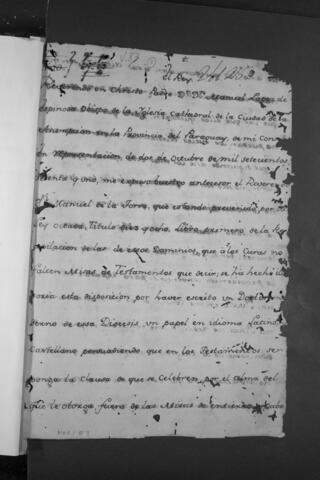 El Rey.
Reverendo en Christo Padre Dn. Dn. Manuel Lopez de
Espinosa Obispo de la Yglesia Cathedral de la Ciudad de la
Assumpcion en la Provincia del Paraguay, de mi Con
en Representacion de dos de Octubre de mil setecientos
senta y uno, me expuso buestro antecesor el Revere
Dn. Manuel de la Torre, que estando prevenido por
Ley octava, Titulo diez y ocho Libro primero de la Re
copilacion de las de esos Dominios, que à los Curas no
falten Misas de Testamentos que decir, se ha hecho
esta disposicion por haver escrito un Doctor
de esa Diocesis, un papel en idioma latino,
Castellano persuadiendo que en los Testamentos, se
ponga la Clausula de que se celebren por el Alma del
que le otorga, fuera de las Misas de entierro y Cabo